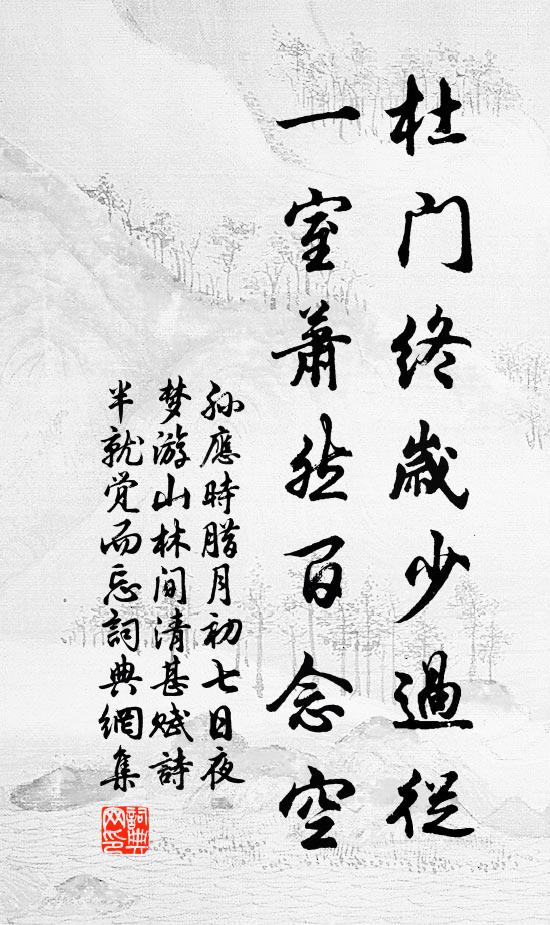 杜门终岁少過從
一室萧然百念空
孙應時腊月初七日夜
梦游山林间清甚赋詩
半就觉而忘詞典網集
詞典
网印